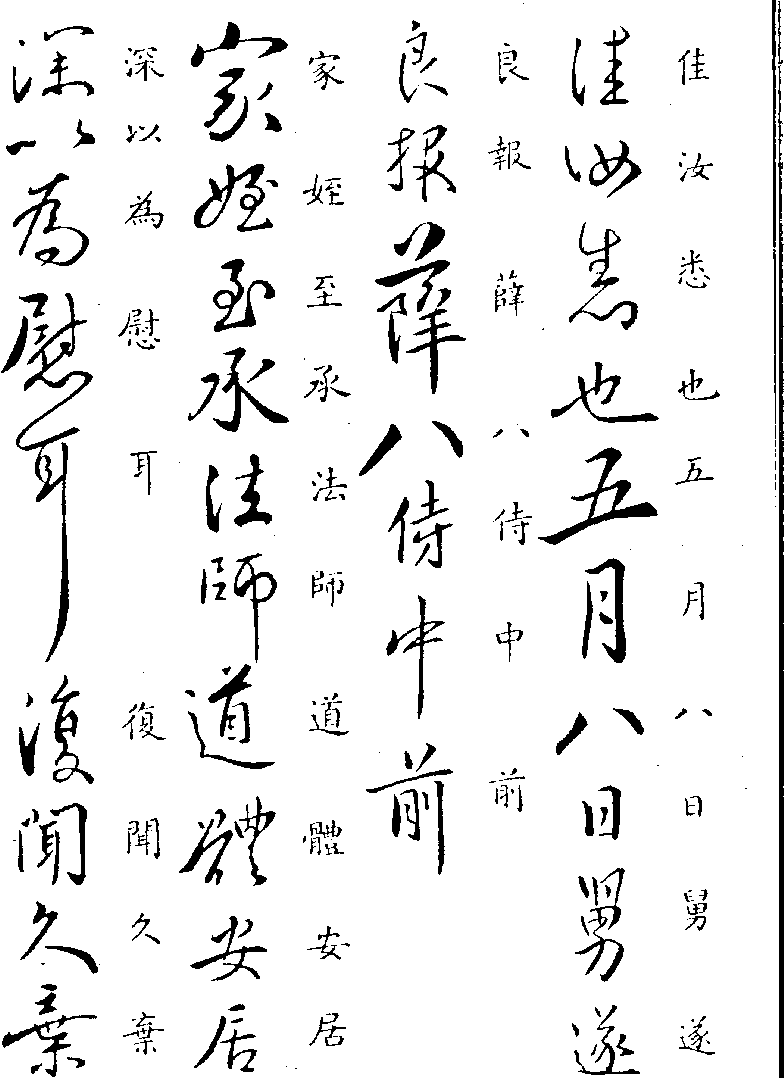 佳汝悉也五月八日舅遂
佳汝悉也五月八日舅遂
良報薛八侍中前
良報薛八侍中前
家姪至承法師道體安居
家姪至承法師道體安居
深以為慰耳復聞久棄
深以為慰耳復聞久棄